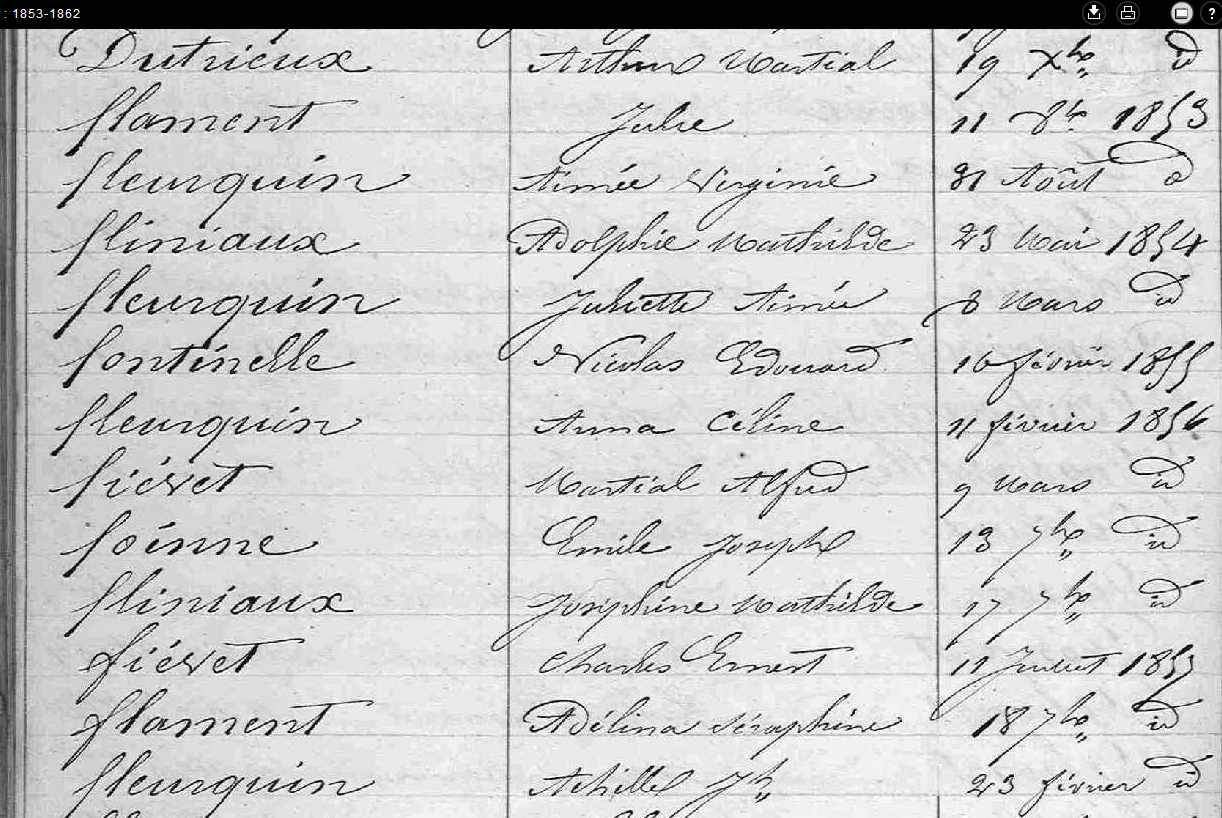 : 1853-1862
Dutrieux Arthur Martial 19 Xbre id
flament Julie 11 8bre 1853
fleurquin Aimée Virginie 31 Août d
fliniaux Adolphie Mathilde 23 Mai 1854
fleurquin Juliette Aimée 8 Mars id
fontinelle Nicolas Edouard 16 février 1855
fleurquin Anna Céline 11 février 1856
fiévet Martial Alfred 9 Mars id
foénne Emile Joseph 13 7bre id
fliniaux Joséphine Mathilde 17 7bre id
fiévet Charles Ernest 11 Juillet
flament Adélina Séraphine 18 7bre id
fleurquin Achille Jh 23 février id